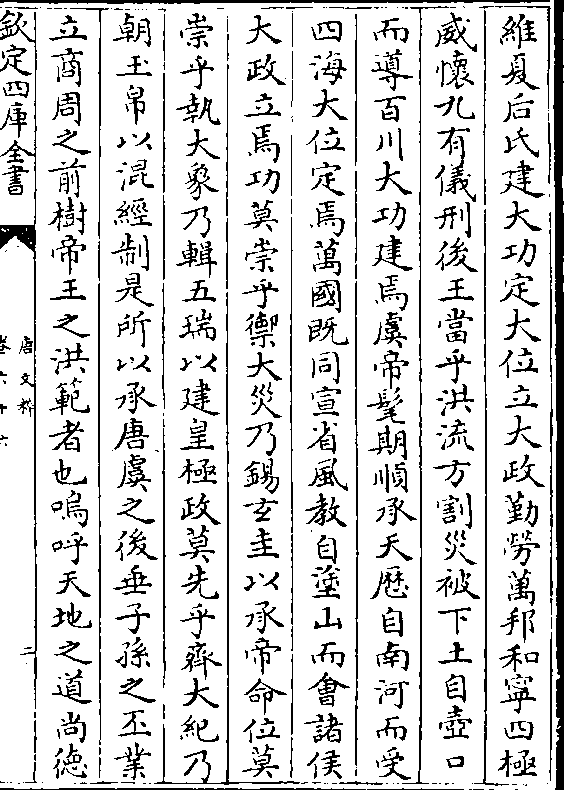 維夏后氏建大功定大位立大政勤勞萬邦和寧四極
威懷九有儀刑後王當乎洪流方割災被下土自壺口
而導百川大功建焉虞帝髦期順承天厯自南河而受
四海大位定焉萬國既同宣省風教自塗山而會諸侯
大政立焉功莫崇乎禦大災乃錫玄圭以承帝命位莫
崇乎執大象乃輯五瑞以建皇極政莫先乎齊大紀乃
朝玉帛以混經制是所以承唐虞之後垂子孫之丕業
立商周之前樹帝王之洪範者也嗚呼天地之道尚德
欽定四庫全書
唐文粹
卷六十六
二